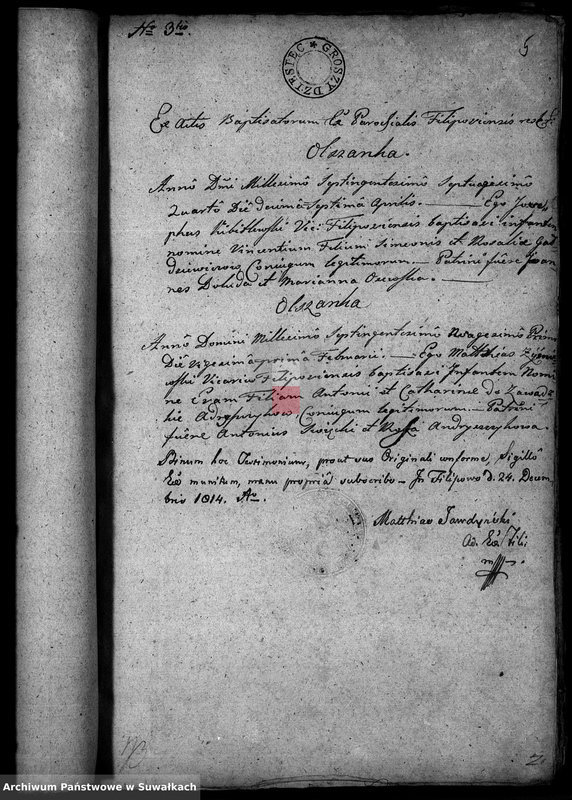 No 3tio.
5
GROSZY DZIESIĘĆ
Ex Actis Baptisatorum Eccl. Parochialis Filipoviensis
Olszanka.
Anno Dni Millesimo Septingentesimo Septuagesimo
Quarto Die decima Septima Aprilis. — Ego Jose-
phus Vic: Filipoviensis baptisavi infantem
nomine Vincentium Filium Simeonis et Rosaliæ
Conjugum legitimorum. — Patrini fuêre Joan-
nes Doluda et Marianna
Olszanka
Anno Domini Millesimo Septingentesimo Nonagesimo Primo
Die vigesima prima Februarii. — Ego Matthæus
Vicarius Filipoviensis baptisavi Infantem Nomi-
ne Evam Filiam Antonii et Catharinæ de Zawadz-
kie Conjugum legitimorum. — Patrini
fuêre Antonius et Rosa Andryszczykowa.
Binum hoc Testimonium, prout suo Originali conforme, Sigillo
Eccl. munitum, manu propriâ subscribo — In Filipowo d. 24. Decem-
bris 1814. Ao.
Matthias
Ad. Eccl. Fili:
mpp.
2
Archiwum Państwowe w Suwałkach